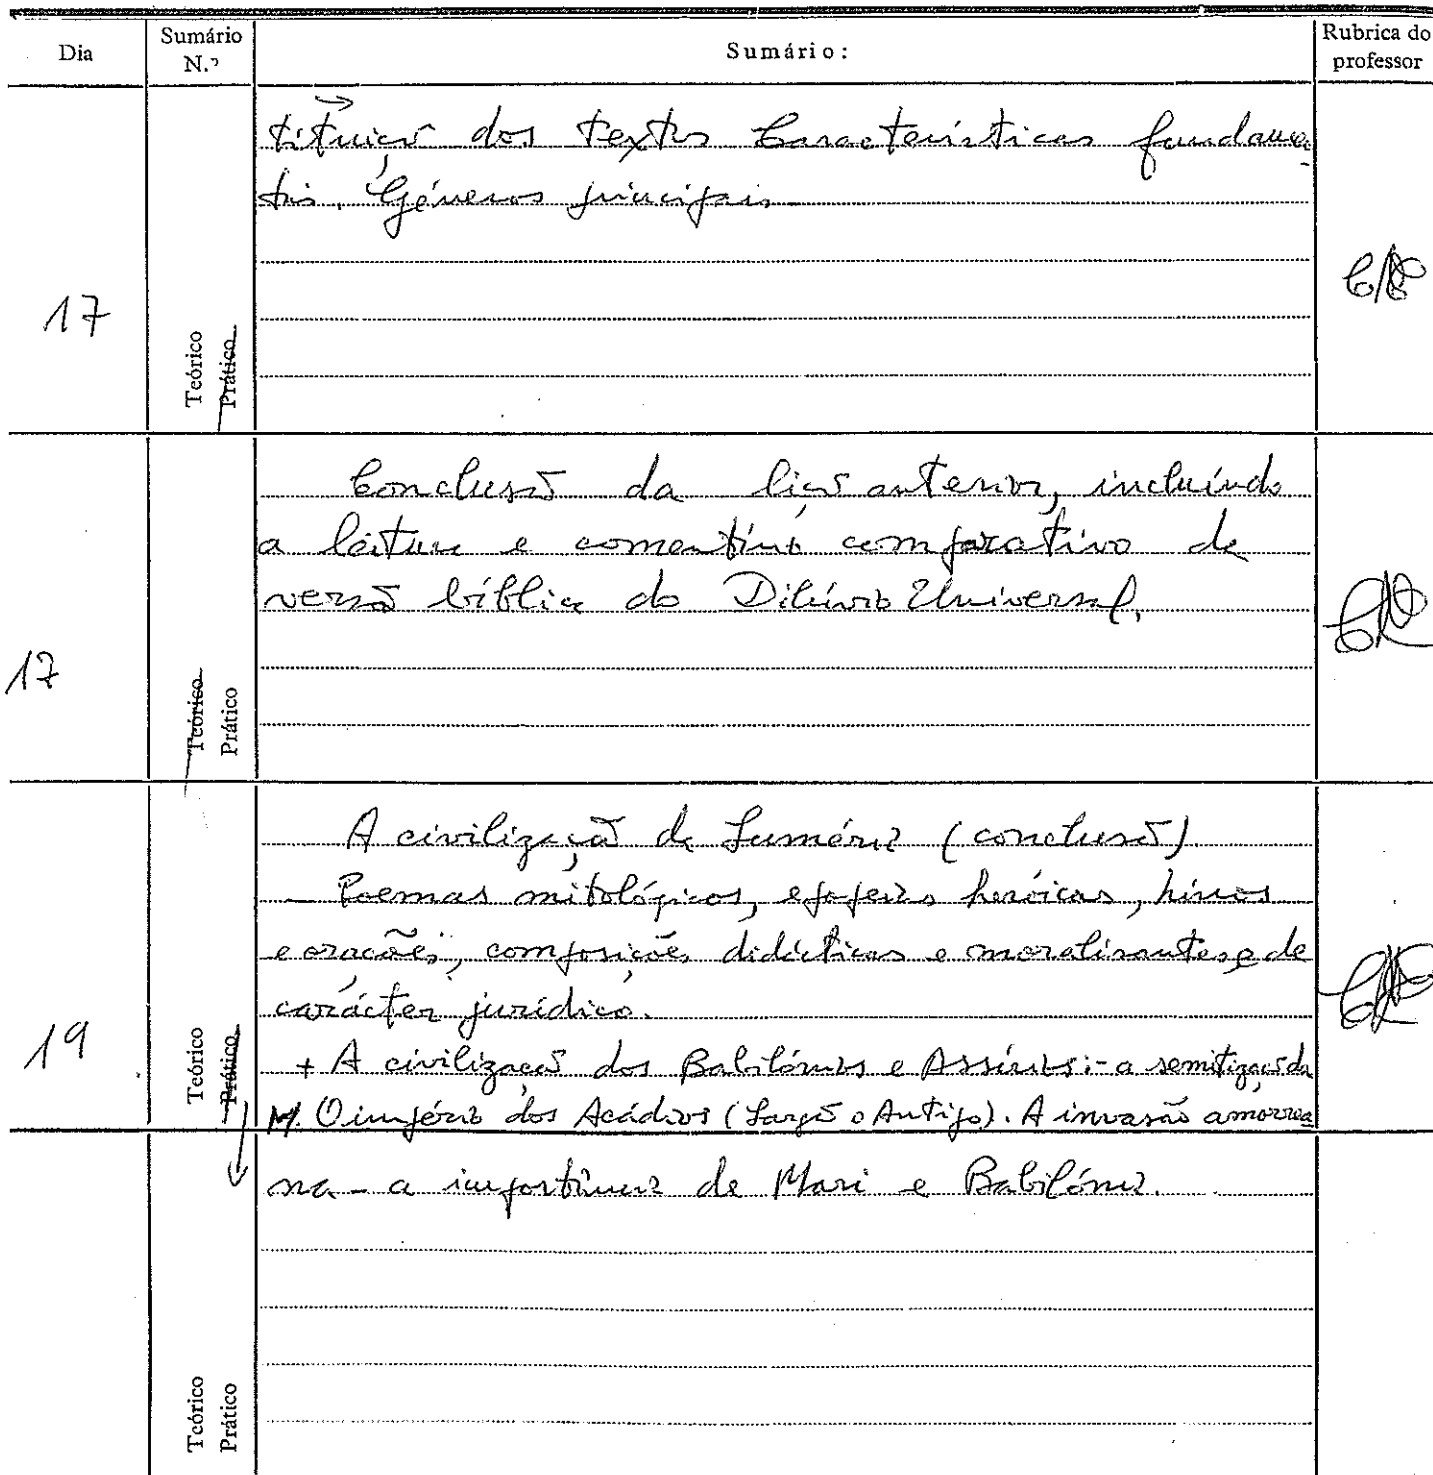 Dia
Sumário N.º
Sumário:
Rubrica do professor
tituição dos textos Características fundamen
tais. Géneros principais
17
Teórico
Prático
Conclusão da lição anterior, incluíndo
a leitura e comentário comparativo da
versão bíblica do Dilúvio Universal.
17
Teórico
Prático
A civilização da Suméria (conclusão)
- Poemas mitológicos, epopeias heróicas, hinos
e orações, composições didácticas e moralisantes e de
carácter jurídico.
19
Teórico
Prático
+ A civilização dos Babilónios e Assírios: - a semitização da
M. O império dos Acádios (Sargão o Antigo). A invasão amorrea
na - a importância de Mari e Babilónia.
Teórico
Prático